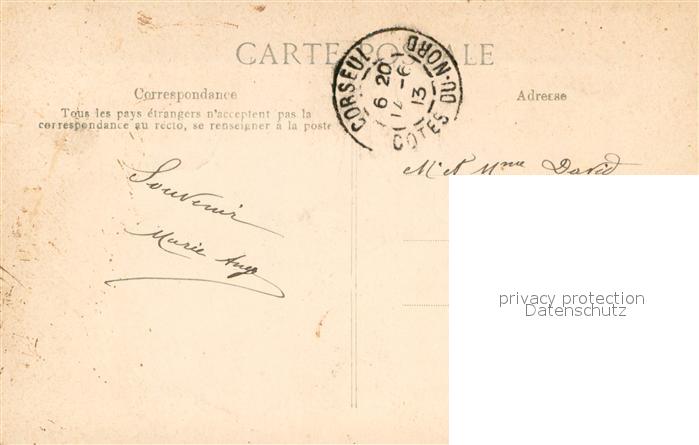 CARTE POSTALE
Correspondance
Tous les pays étrangers n'acceptent pas la
correspondance au recto, se renseigner à la poste
Adresse
CORSEUL
COTES-DU-NORD
6 20
14-6
13
M. et Mme David
Souvenir
Marie Ange
privacy protection
Datenschutz